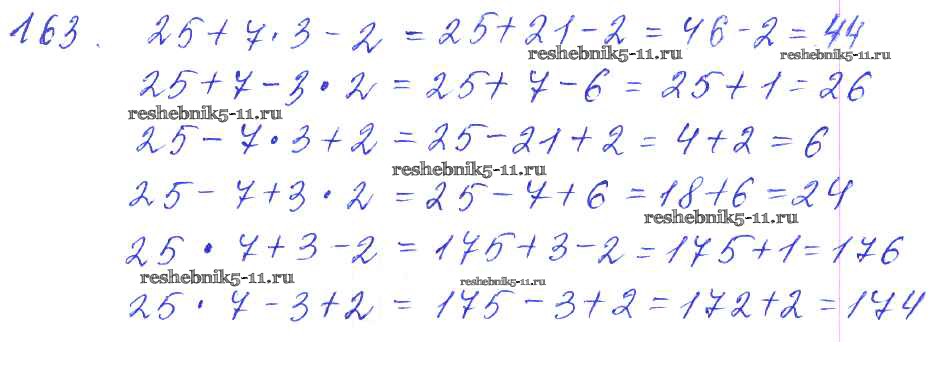 163. 25 + 7 · 3 - 2 = 25 + 21 - 2 = 46 - 2 = 44
reshebnik5-11.ru reshebnik5-11.ru
25 + 7 - 3 · 2 = 25 + 7 - 6 = 25 + 1 = 26
reshebnik5-11.ru
25 - 7 · 3 + 2 = 25 - 21 + 2 = 4 + 2 = 6
reshebnik5-11.ru
25 - 7 + 3 · 2 = 25 - 7 + 6 = 18 + 6 = 24
reshebnik5-11.ru
25 · 7 + 3 - 2 = 175 + 3 - 2 = 175 + 1 = 176
reshebnik5-11.ru reshebnik5-11.ru
25 · 7 - 3 + 2 = 175 - 3 + 2 = 172 + 2 = 174